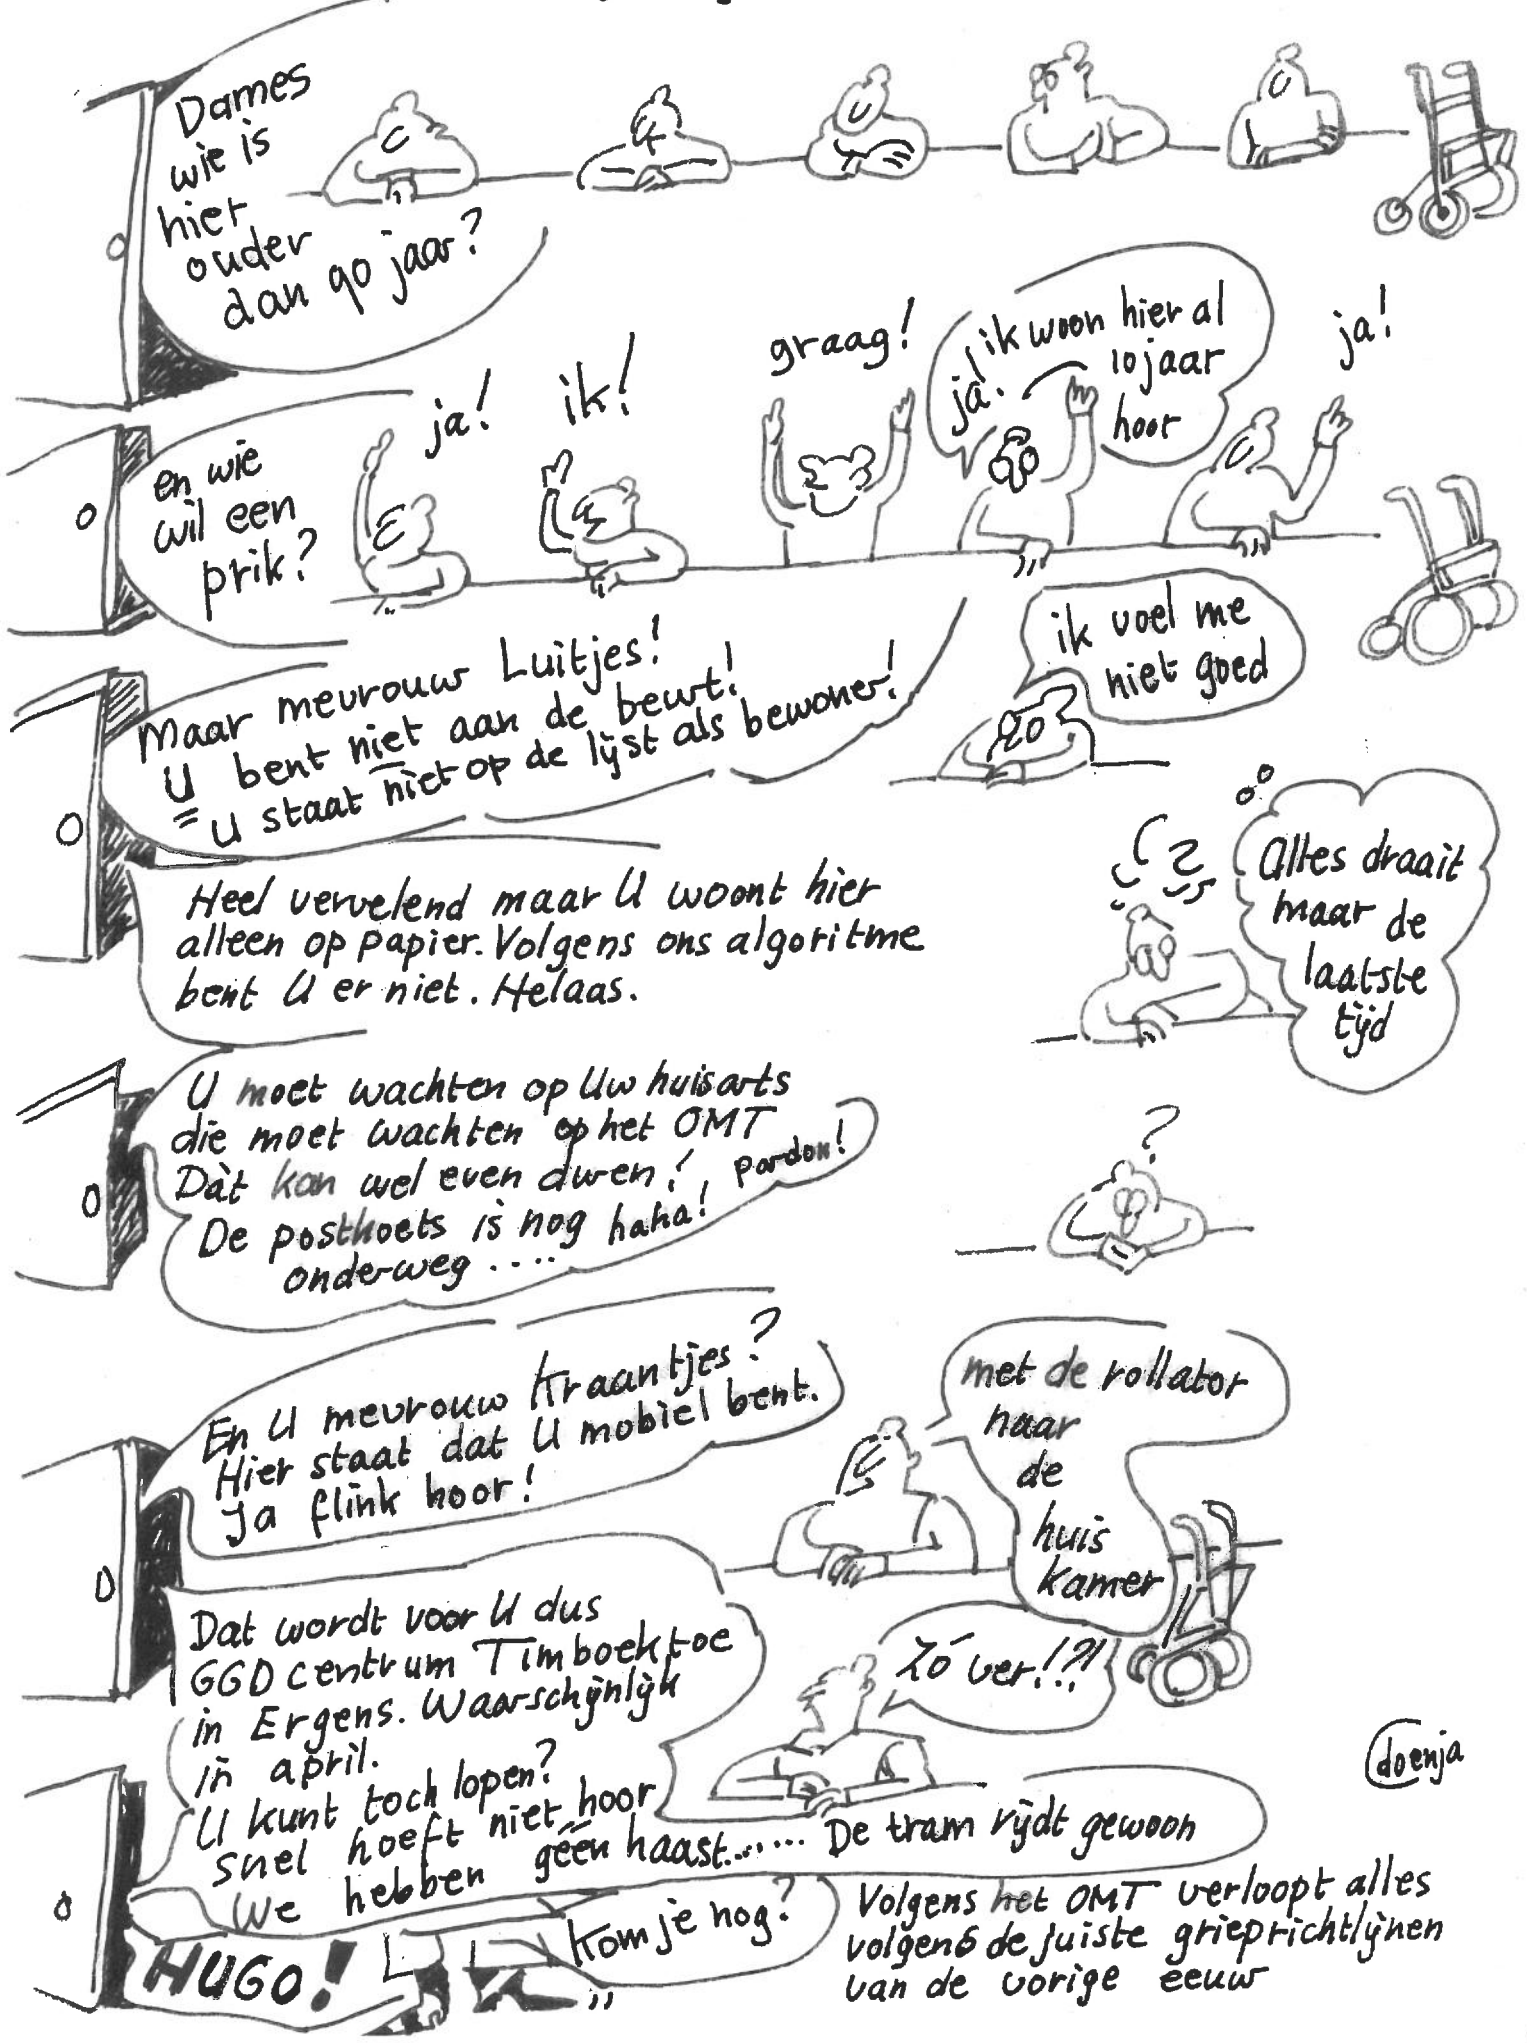 Dames
wie is
hier
ouder
dan 90 jaar?
en wie
wil een
prik?
ja!
ik!
graag!
ja! ik woon hier al
10 jaar
hoor
ja!
Maar mevrouw Luitjes!
U bent niet aan de beurt!
U staat niet op de lijst als bewoner!
ik voel me
niet goed
Heel vervelend maar U woont hier
alleen op papier. Volgens ons algoritme
bent U er niet. Helaas.
Alles draait
maar de
laatste
tijd
U moet wachten op Uw huisarts
die moet wachten op het OMT
Dàt kan wel even duren!
De postkoets is nog haha! pardon!
onderweg ....
?
En U mevrouw Kraantjes?
Hier staat dat U mobiel bent.
Ja flink hoor!
met de rollator
naar
de
huis
kamer
Dat wordt voor U dus
GGD centrum Timboektoe
in Ergens. Waarschijnlijk
in april.
U kunt toch lopen?
snel hoeft niet hoor
We hebben géén haast...... De tram rijdt gewoon
Zó ver!?!
doenja
HUGO!
Kom je nog?
Volgens het OMT verloopt alles
volgens de juiste grieprichtlijnen
van de vorige eeuw